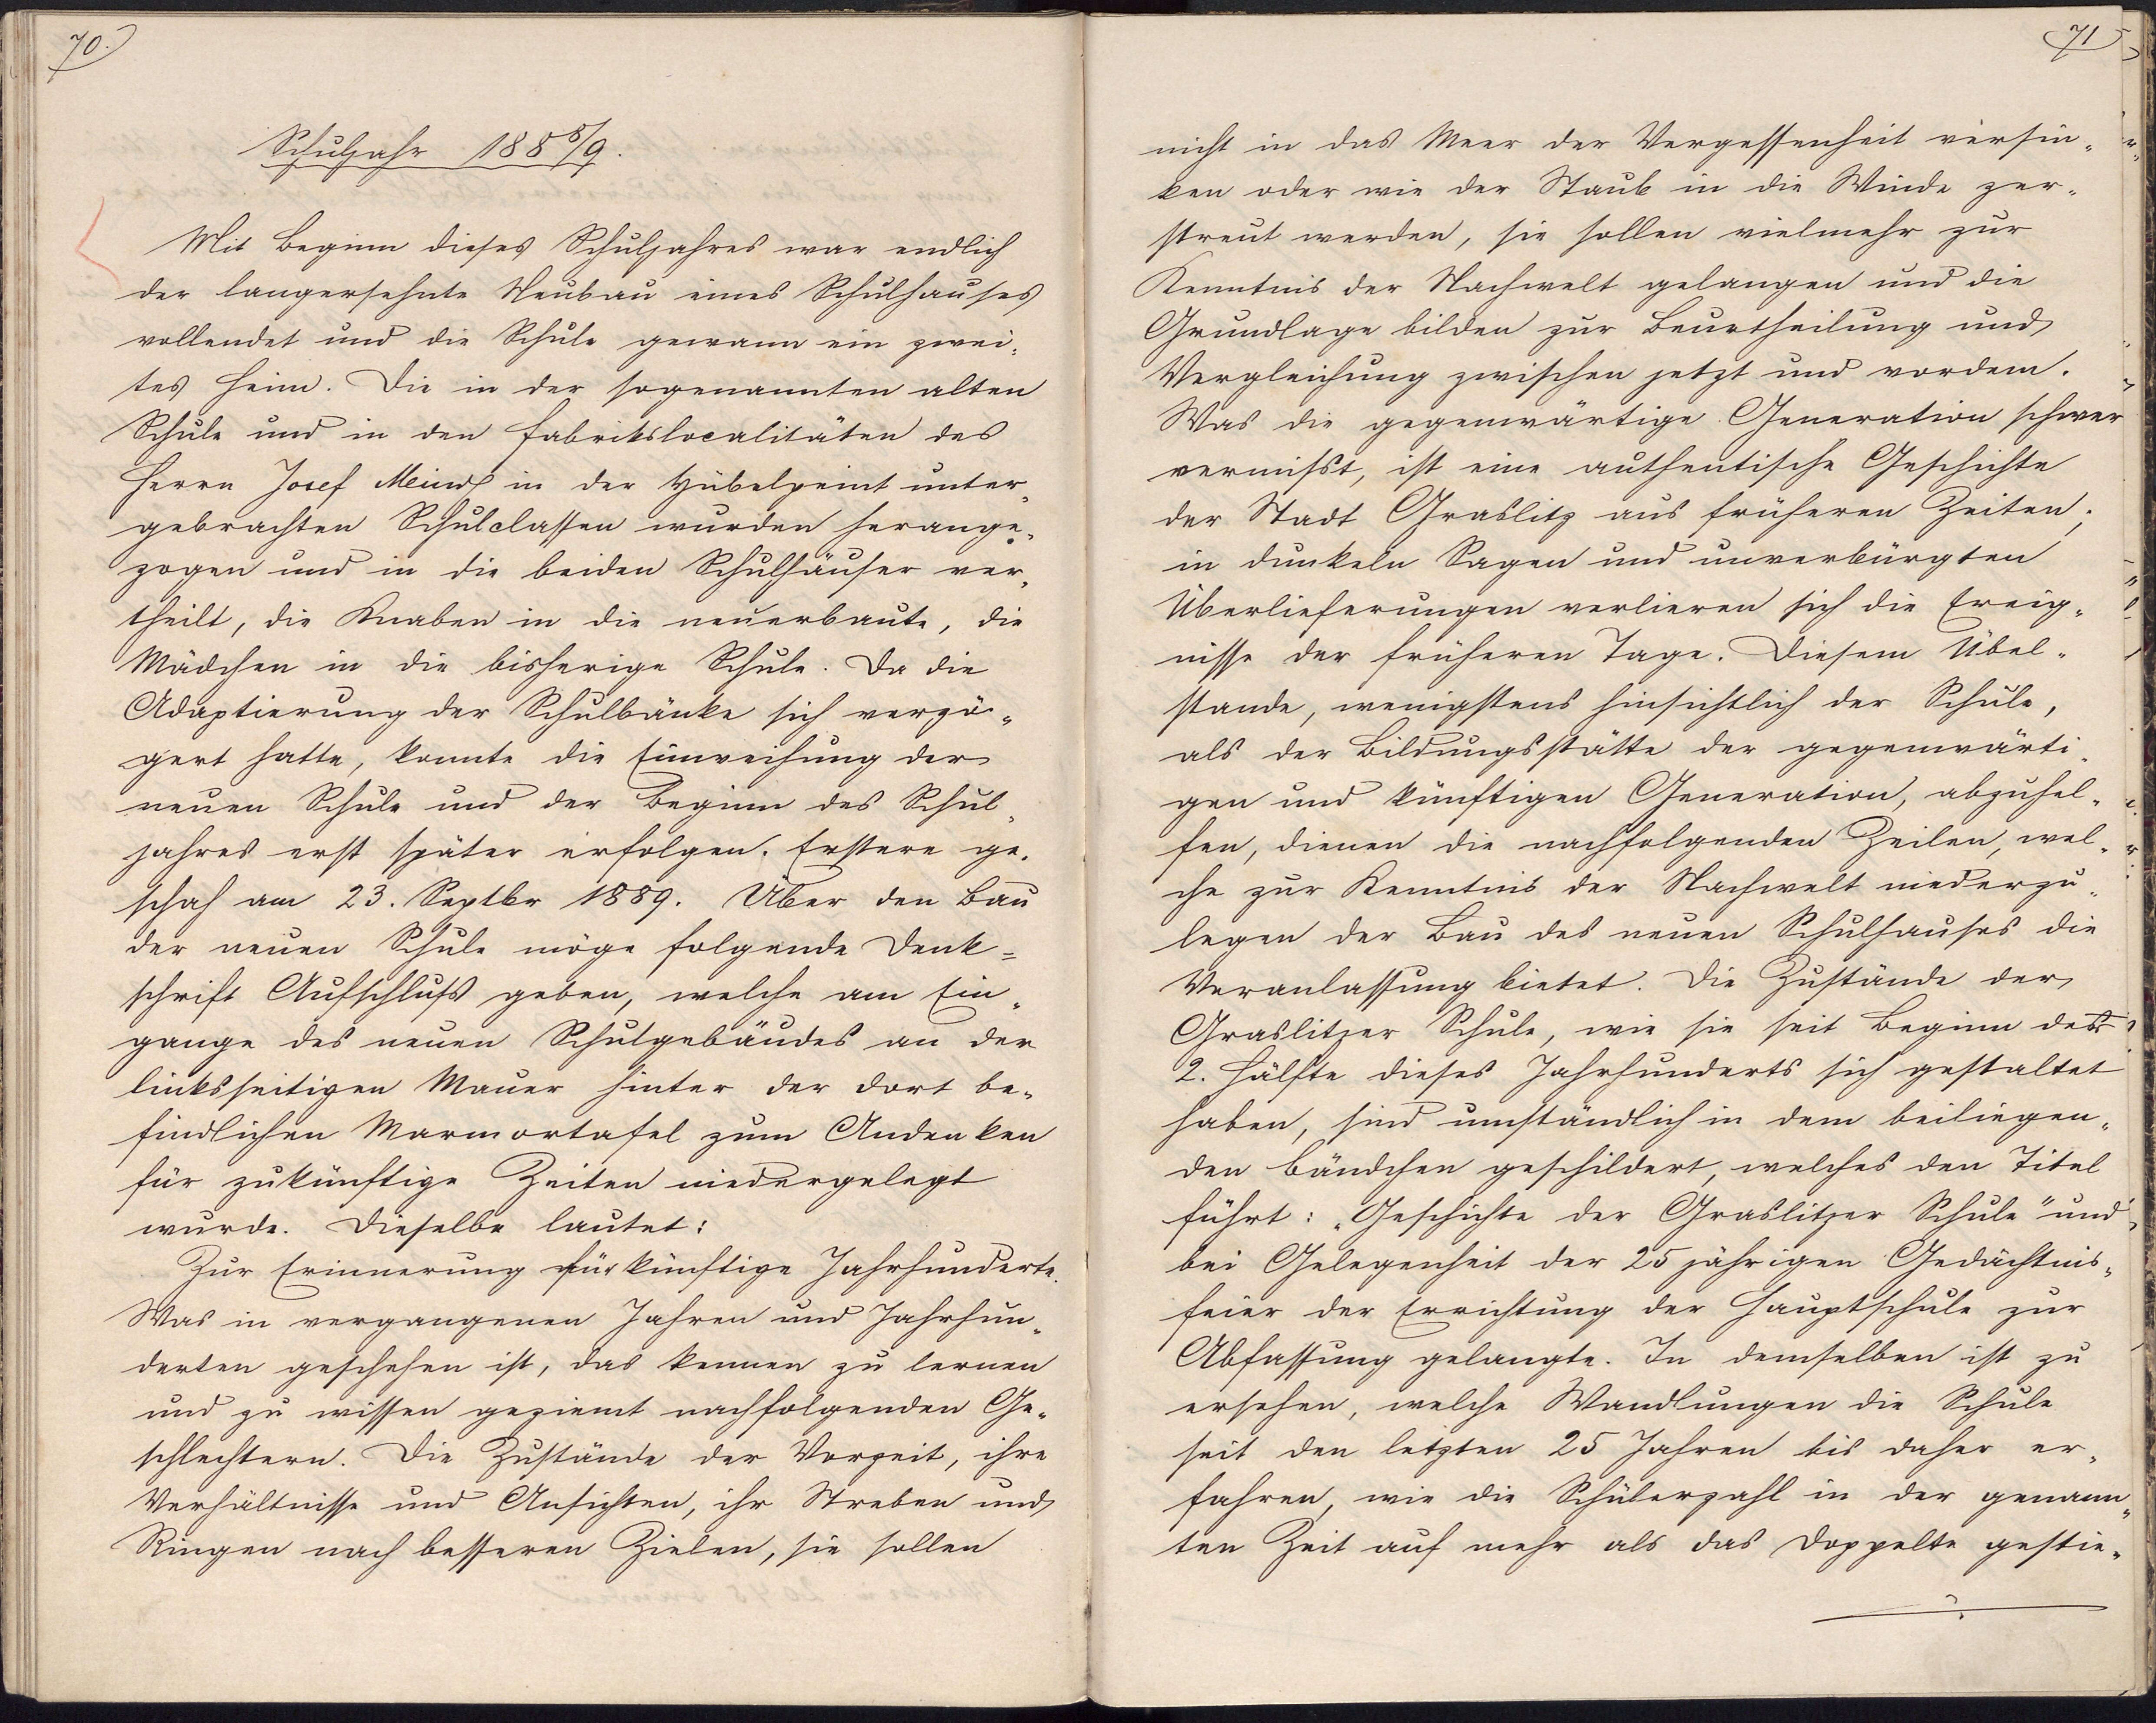 70.
Schuljahr 188 8/9.
Mit Beginn dieses Schuljahres war endlich
der langersehnte Neubau eines Schulhauses
vollendet und die Schule gewann ein zwei-
tes Heim. Die in der sogenannten alten
Schule und in den Fabrikslocalitäten des
Herrn Josef Meindl in der Hübelpeint unter-
gebrachten Schulclassen wurden herange-
zogen und in die beiden Schulhäuser ver-
theilt, die Knaben in die neuerbaute, die
Mädchen in die bisherige Schule. Da die
Adaptierung der Schulbänke sich verzö-
gert hatte, konnte die Einweihung der
neuen Schule und der Beginn des Schul-
jahres erst später erfolgen. Erstere ge-
schah am 23. Septbr 1889. Über den Bau
der neuen Schule möge folgende Denk=
schrift Aufschluß geben, welche am Ein-
gange des neuen Schulgebäudes an der
linksseitigen Mauer hinter der dort be-
findlichen Marmortafel zum Andenken
für zukünftige Zeiten niedergelegt
wurde. Dieselbe lautet:
Zur Erinnerung für künftige Jahrhunderte.
Was in vergangenen Jahren und Jahrhun-
derten geschehen ist, das kennen zu lernen
und zu wissen geziemt nachfolgenden Ge-
schlechtern. Die Zustände der Vorzeit, ihre
Verhältnisse und Ansichten, ihr Streben und
Ringen nach besseren Zielen, sie sollen
71
nicht in das Meer der Vergessenheit versin-
ken oder wie der Staub in die Winde zer-
streut werden, sie sollen vielmehr zur
Kenntnis der Nachwelt gelangen und die
Grundlage bilden zur Beurtheilung und
Vergleichung zwischen jetzt und vordem.
Was die gegenwärtige Generation schwer
vermißt, ist eine authentische Geschichte
der Stadt Graslitz aus früheren Zeiten;
in dunkeln Sagen und unverbürgten
Überlieferungen verlieren sich die Ereig-
nisse der früheren Tage. Diesem Übel-
stande, wenigstens hinsichtlich der Schule,
als der Bildungsstätte der gegenwärti-
gen und künftigen Generation, abzuhel-
fen, dienen die nachfolgenden Zeilen, wel-
che zur Kenntnis der Nachwelt niederzu-
legen der Bau des neuen Schulhauses die
Veranlassung bietet. Die Zustände der
Graslitzer Schule, wie sie seit Beginn der
2. Hälfte dieses Jahrhunderts sich gestaltet
haben, sind umständlich in dem beiliegen-
den Bändchen geschildert, welches den Titel
führt: „Geschichte der Graslitzer Schule" und
bei Gelegenheit der 25 jährigen Gedächtnis-
feier der Errichtung der Hauptschule zur
Abfassung gelangte. In demselben ist zu
ersehen, welche Wandlungen die Schule
seit den letzten 25 Jahren bis daher er-
fahren, wie die Schülerzahl in der genann-
ten Zeit auf mehr als das Doppelte gestie-